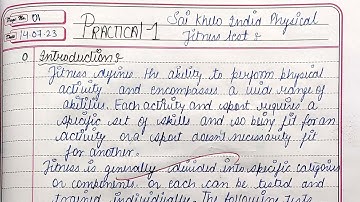 Page No. 01
Date 14.07.23
PRACTICAL-1
Sai Khelo India Physical
Fitness
Introduction:
Fitness defines the ability to perform physical
activity and encompasses a wide range of
abilities. Each activity and sport requires a
specific set of skills and so being fit for an
activity or a sport doesn't necessarily fit
for another.
Fitness is generally divided into specific categories
or components. or each can be tested and
trained individually. The following tests